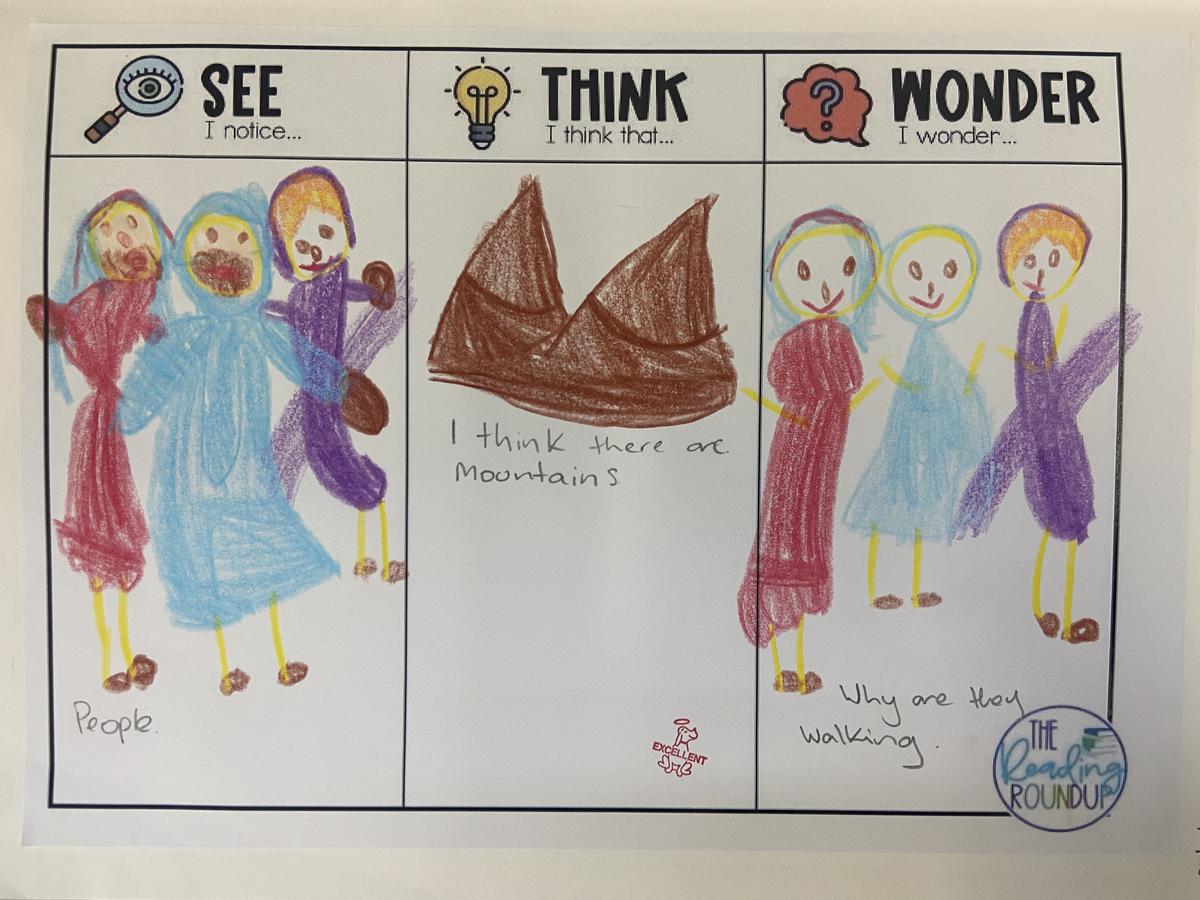 SEE
I notice...
THINK
I think that...
WONDER
I wonder...
I think there are
Mountains
People.
Why are they
walking.
EXCELLENT
THE
Reading
ROUNDUP